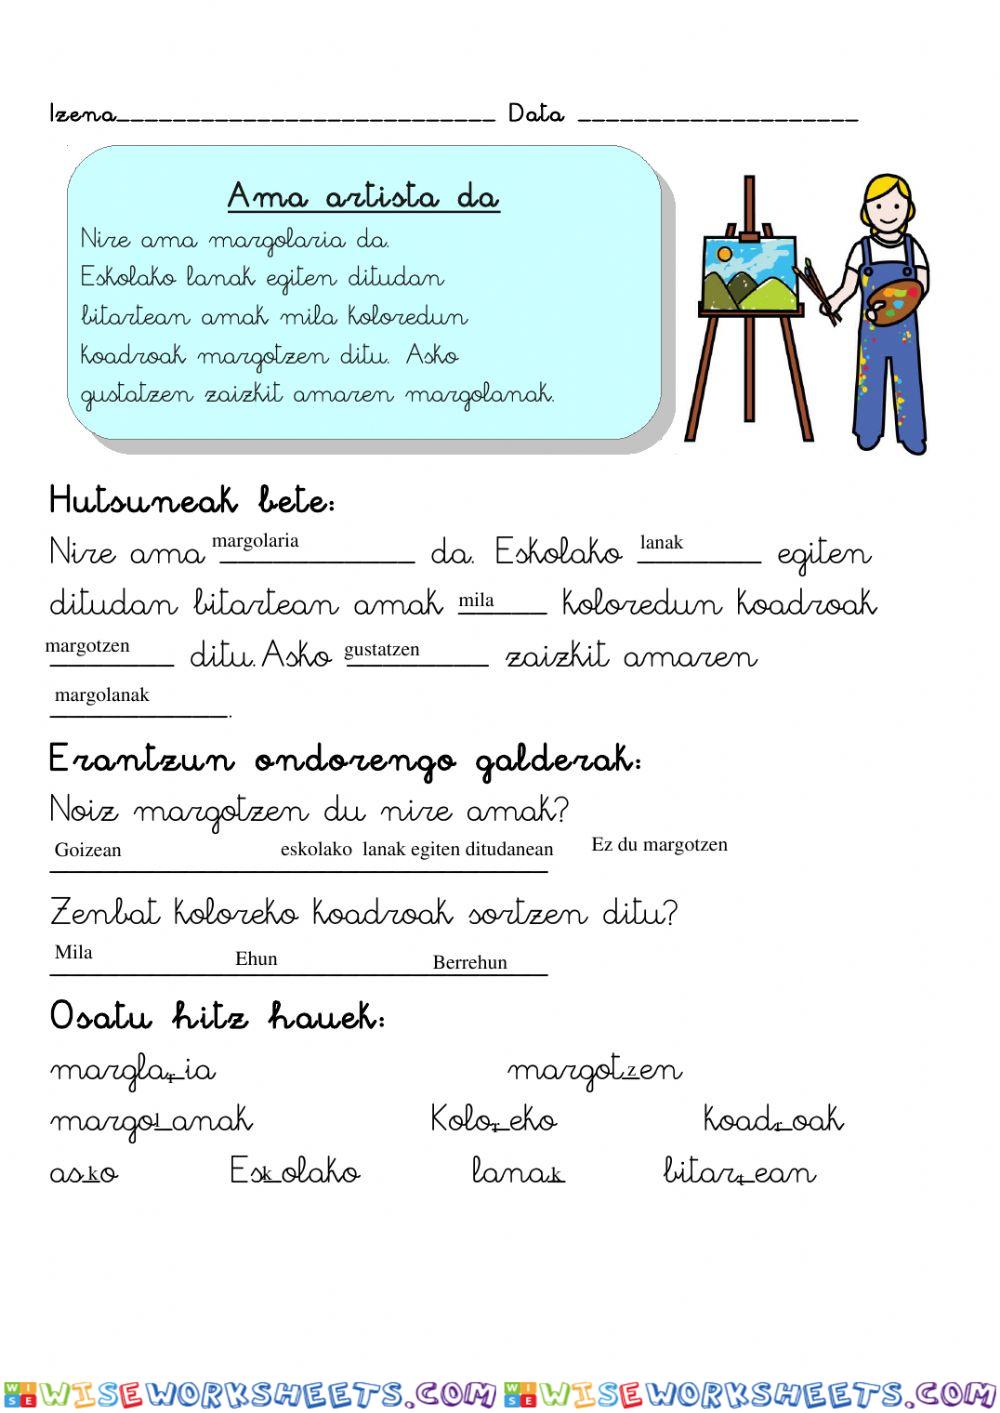 Izena___________________________ Data ____________________
Ama artista da
Nire ama margolaria da.
Eskolako lanak egiten ditudan
bitartean amak mila koloredun
koadroak margotzen ditu. Asko
gustatzen zaizkit amaren margolanak.
Hutsuneak bete:
Nire ama margolaria da. Eskolako lanak egiten
ditudan bitartean amak mila koloredun koadroak
margotzen ditu. Asko gustatzen zaizkit amaren
margolanak.
Erantzun ondorengo galderak:
Noiz margotzen du nire amak?
Goizean eskolako lanak egiten ditudanean Ez du margotzen
Zenbat koloreko koadroak sortzen ditu?
Mila Ehun Berrehun
Osatu hitz hauek:
marglaria margotzen
margolanak Koloreko koadroak
asko Eskolako lanak bitartean
WISEWORKSHEETS.COM WISEWORKSHEETS.COM